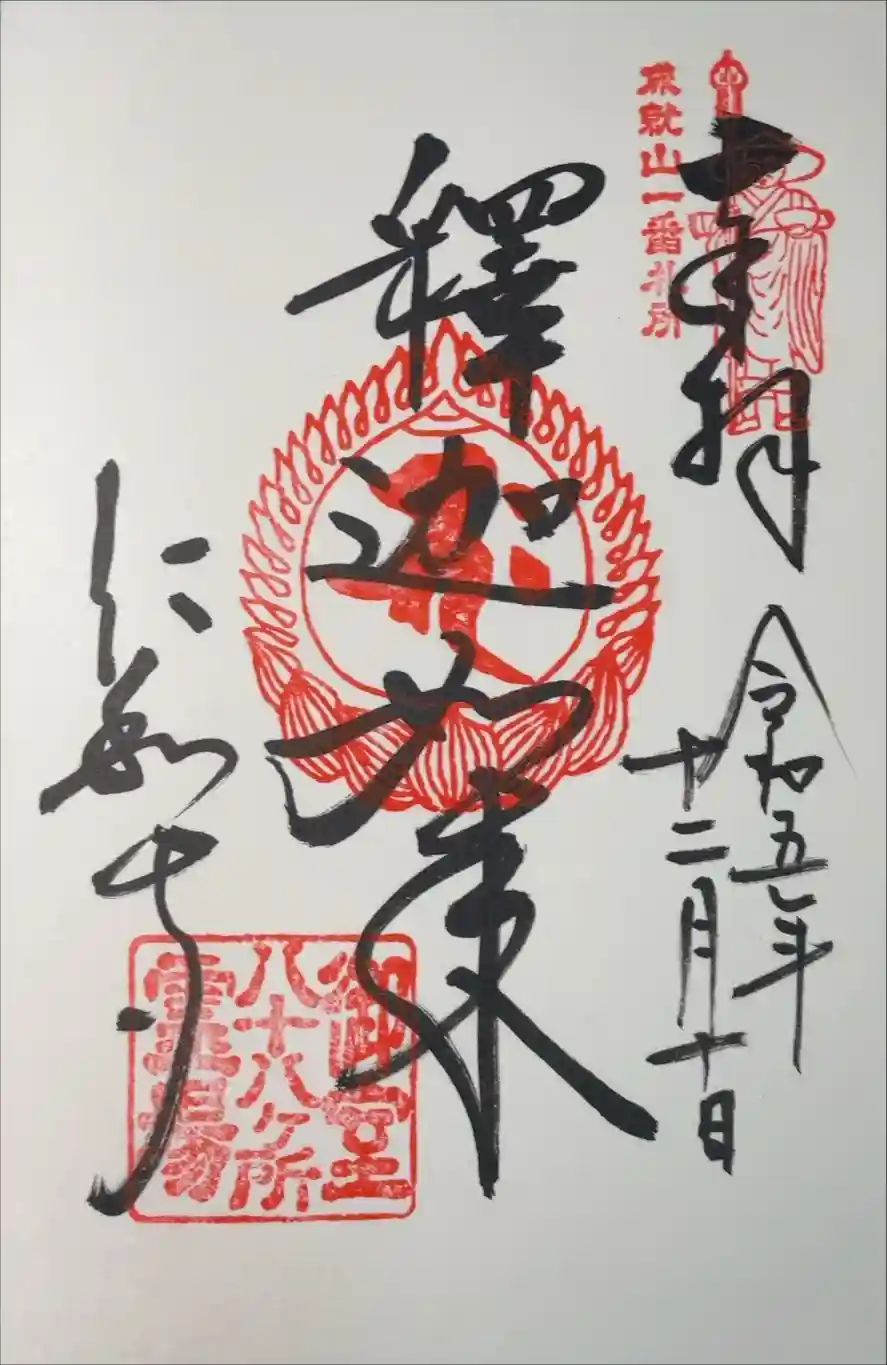 奉拝
成就山一番札所
令和五年
十二月十日
釋迦如来
仁和寺
御室
八十八ヶ所
霊場